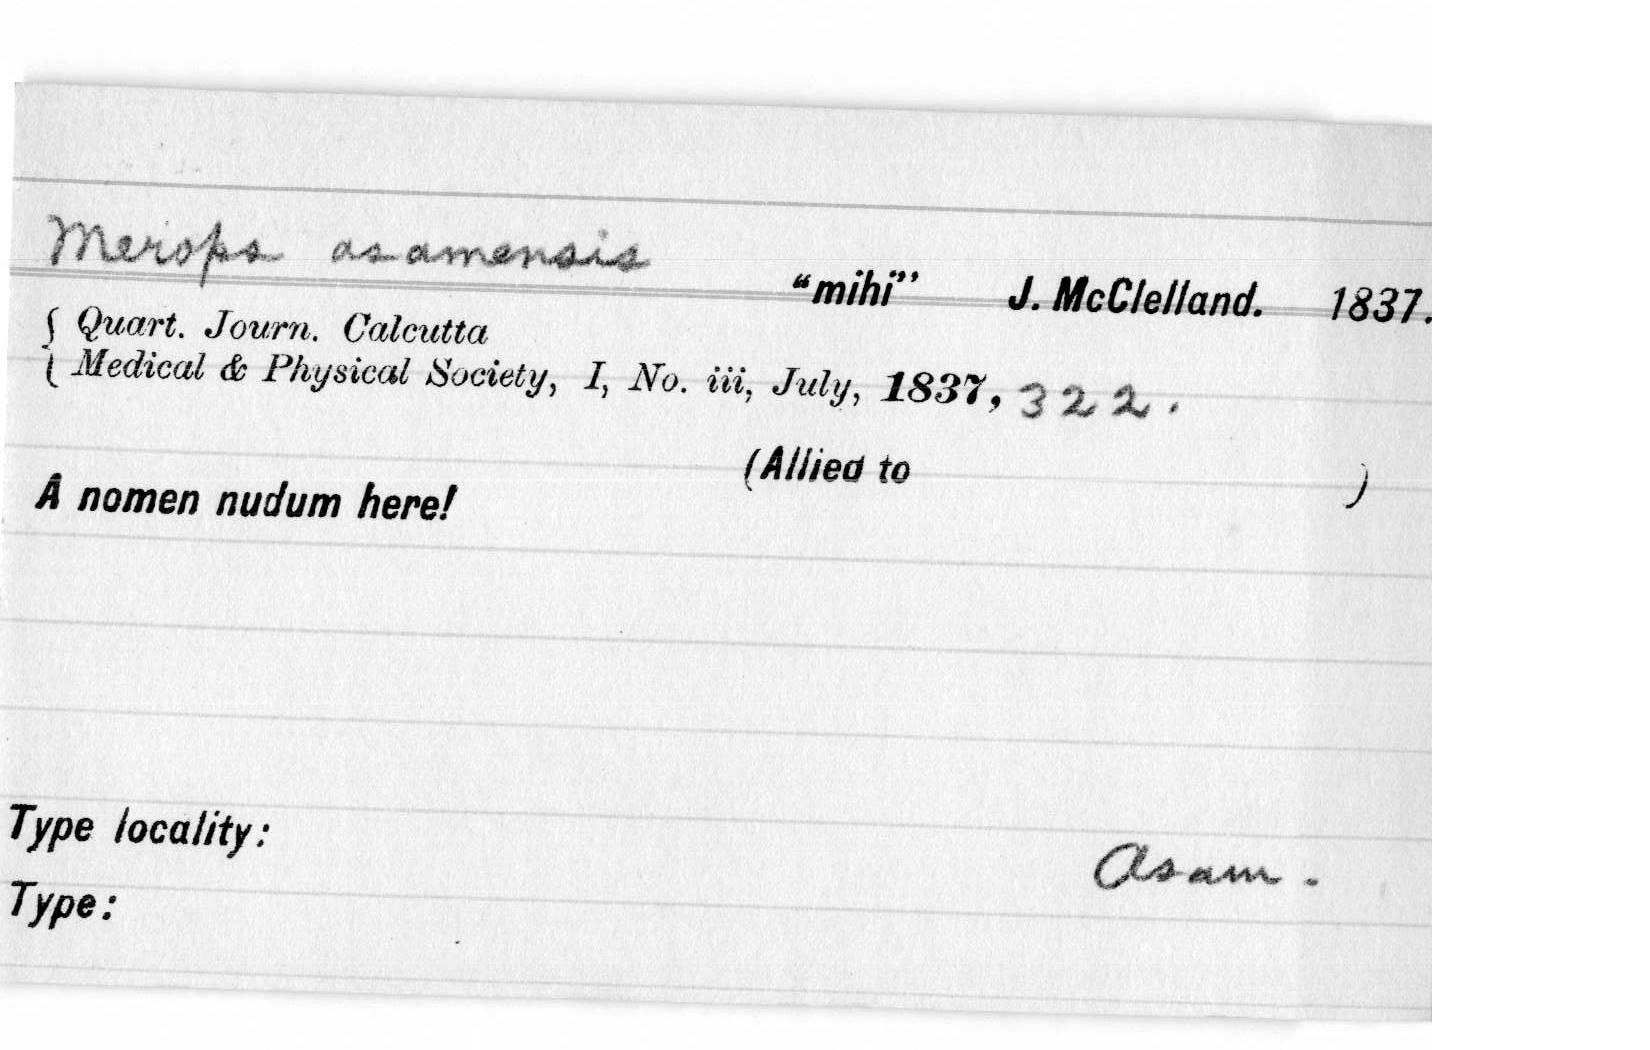 Merops asamensis "mihi" J. McClelland. 1837.
{ Quart. Journ. Calcutta
{ Medical & Physical Society, I, No. iii, July, 1837, 322.
(Allied to )
A nomen nudum here!
Type locality: Asam.
Type: